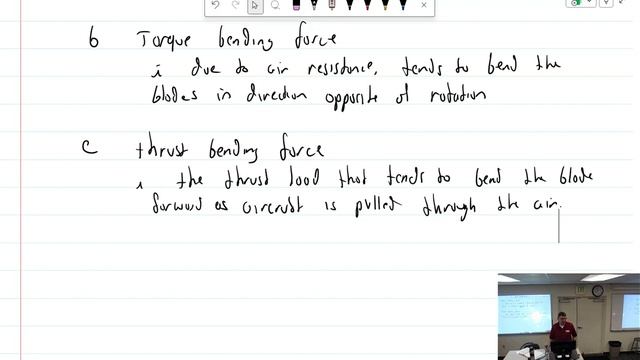 b Torque bending force
i due to air resistance, tends to bend the
blades in direction opposite of rotation
c thrust bending force
i the thrust load that tends to bend the blade
forward as aircraft is pulled through the air.